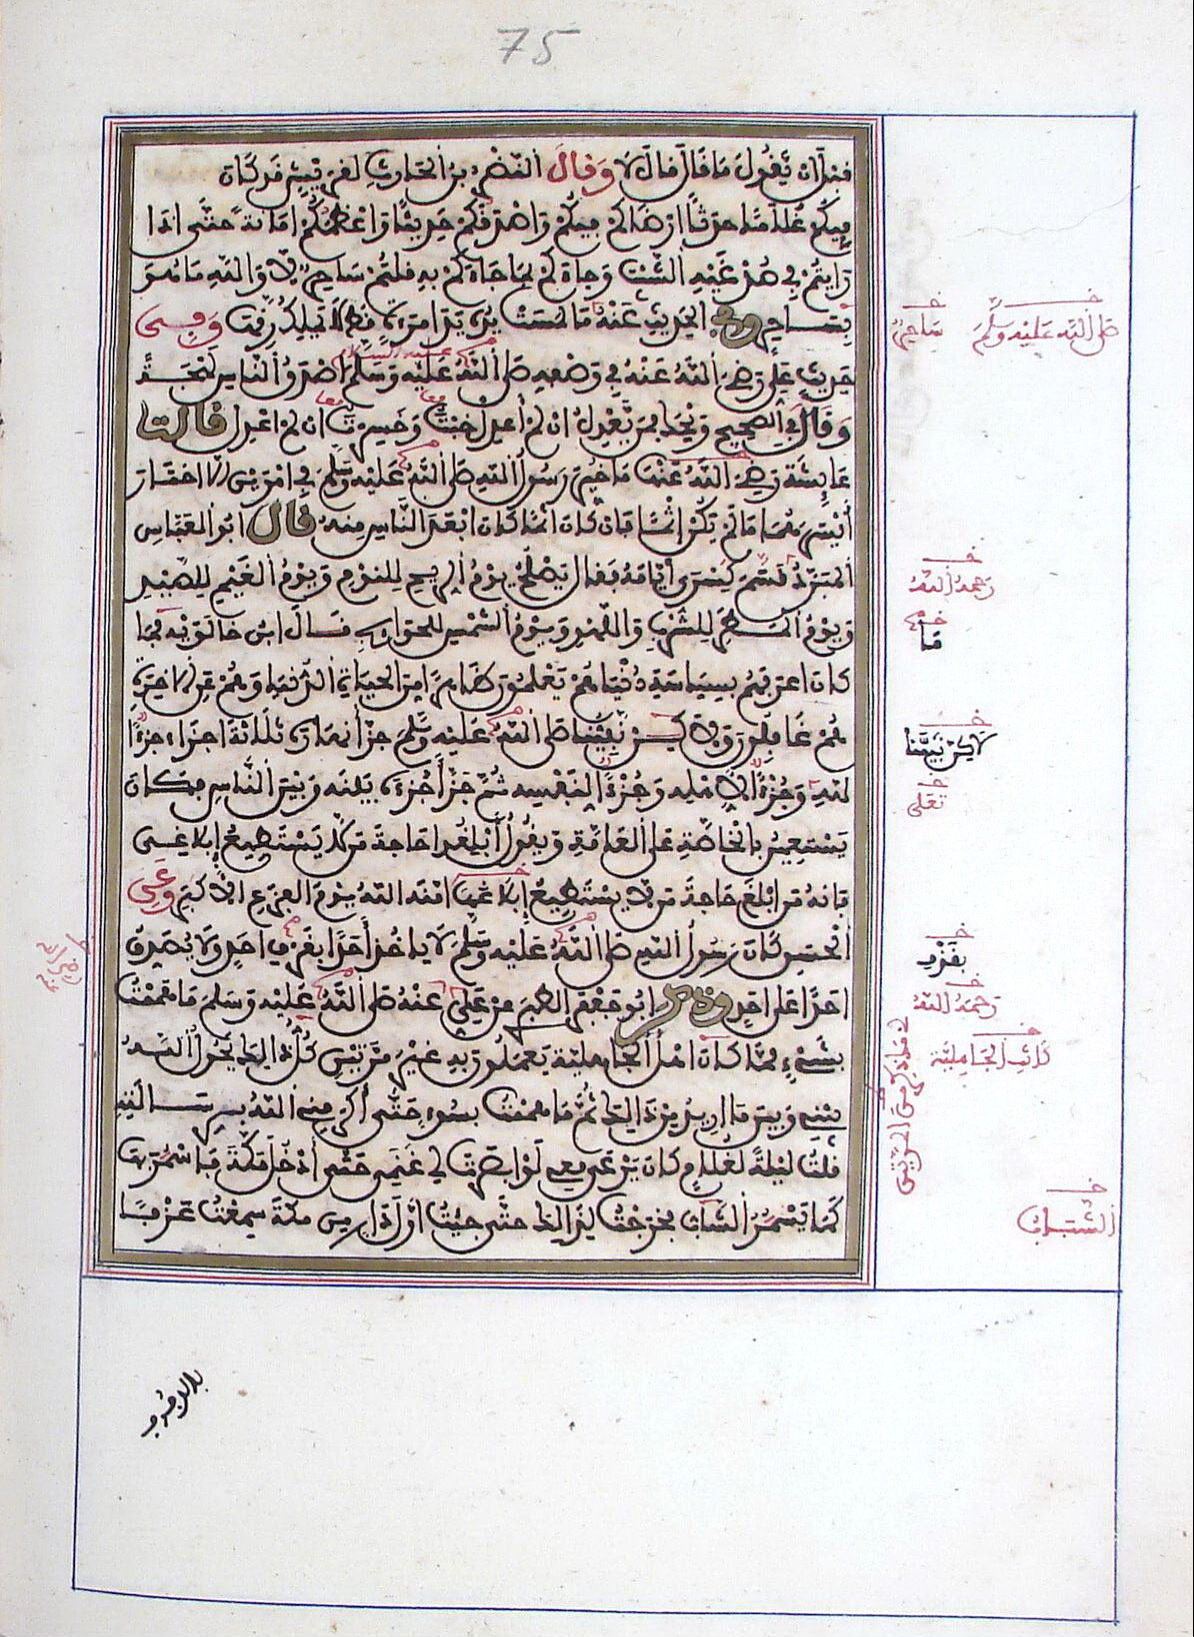 75
قبل أن يقول ما قال قال لا وقال النضر بن الحارث لقريش قد كان
فيكم غلاما حدثا أرضاكم فيكم وأصدقكم حديثا وأعظمكم أمانة حتى إذا
رأيتم في صدغيه الشيب وجاءكم بما جاءكم به قلتم ساحر لا والله ما هو
بساحر وفي الحديث عنه ما لمست يده يد امرأة قط لا يملك رقها وفي
حديث علي رضي الله عنه في وصفه صلى الله عليه وسلم أصدق الناس لهجة
وقال في الصحيح ويحك فمن يعدل إن لم أعدل خبت وخسرت إن لم أعدل قالت
عائشة رضي الله عنها ما خير رسول الله صلى الله عليه وسلم في أمرين إلا اختار
أيسرهما ما لم يكن إثما فإن كان إثما كان أبعد الناس منه قال أبو العباس
المبرد قسم كسرى أيامه فقال يصلح يوم الريح للنوم ويوم الغيم للصيد
ويوم المطر للشرب واللهو ويوم الشمس للحوائج قال ابن خالويه ما
كان أعرفهم بسياسة دنياهم يعلمون ظاهرا من الحياة الدنيا وهم عن الآخرة
هم غافلون ولكن نبينا صلى الله عليه وسلم جزأ نهاره ثلاثة أجزاء جزءا
لله وجزءا لأهله وجزءا لنفسه ثم جزأ جزءه بينه وبين الناس فكان
يستعين بالخاصة على العامة ويقول أبلغوا حاجة من لا يستطيع إبلاغي
فإنه من أبلغ حاجة من لا يستطيع إبلاغها أمنه الله يوم الفزع الأكبر وعن
الحسن كان رسول الله صلى الله عليه وسلم لا يأخذ أحدا بقرف أحد ولا يصدق
أحدا على أحد وذكر أبو جعفر الطبري عن علي عنه صلى الله عليه وسلم ما هممت
بشيء مما كان أهل الجاهلية يعملون به غير مرتين كل ذلك يحول الله
بيني وبين ما أريد من ذلك ثم ما هممت بسوء حتى أكرمني الله برسالته
قلت ليلة لغلام كان يرعى معي لو أبصرت لي غنمي حتى أدخل مكة فأسمر بها
كما يسمر الشباب فخرجت لذلك حتى جئت أول دار من مكة سمعت عزفا
عليه السلام
معا
معا
صلى الله عليه وسلم
ساحر
رحمه الله
ما
لاكن نبينا
تعلى
بقذف
رحمه الله
كانت الجاهلية
الشباب